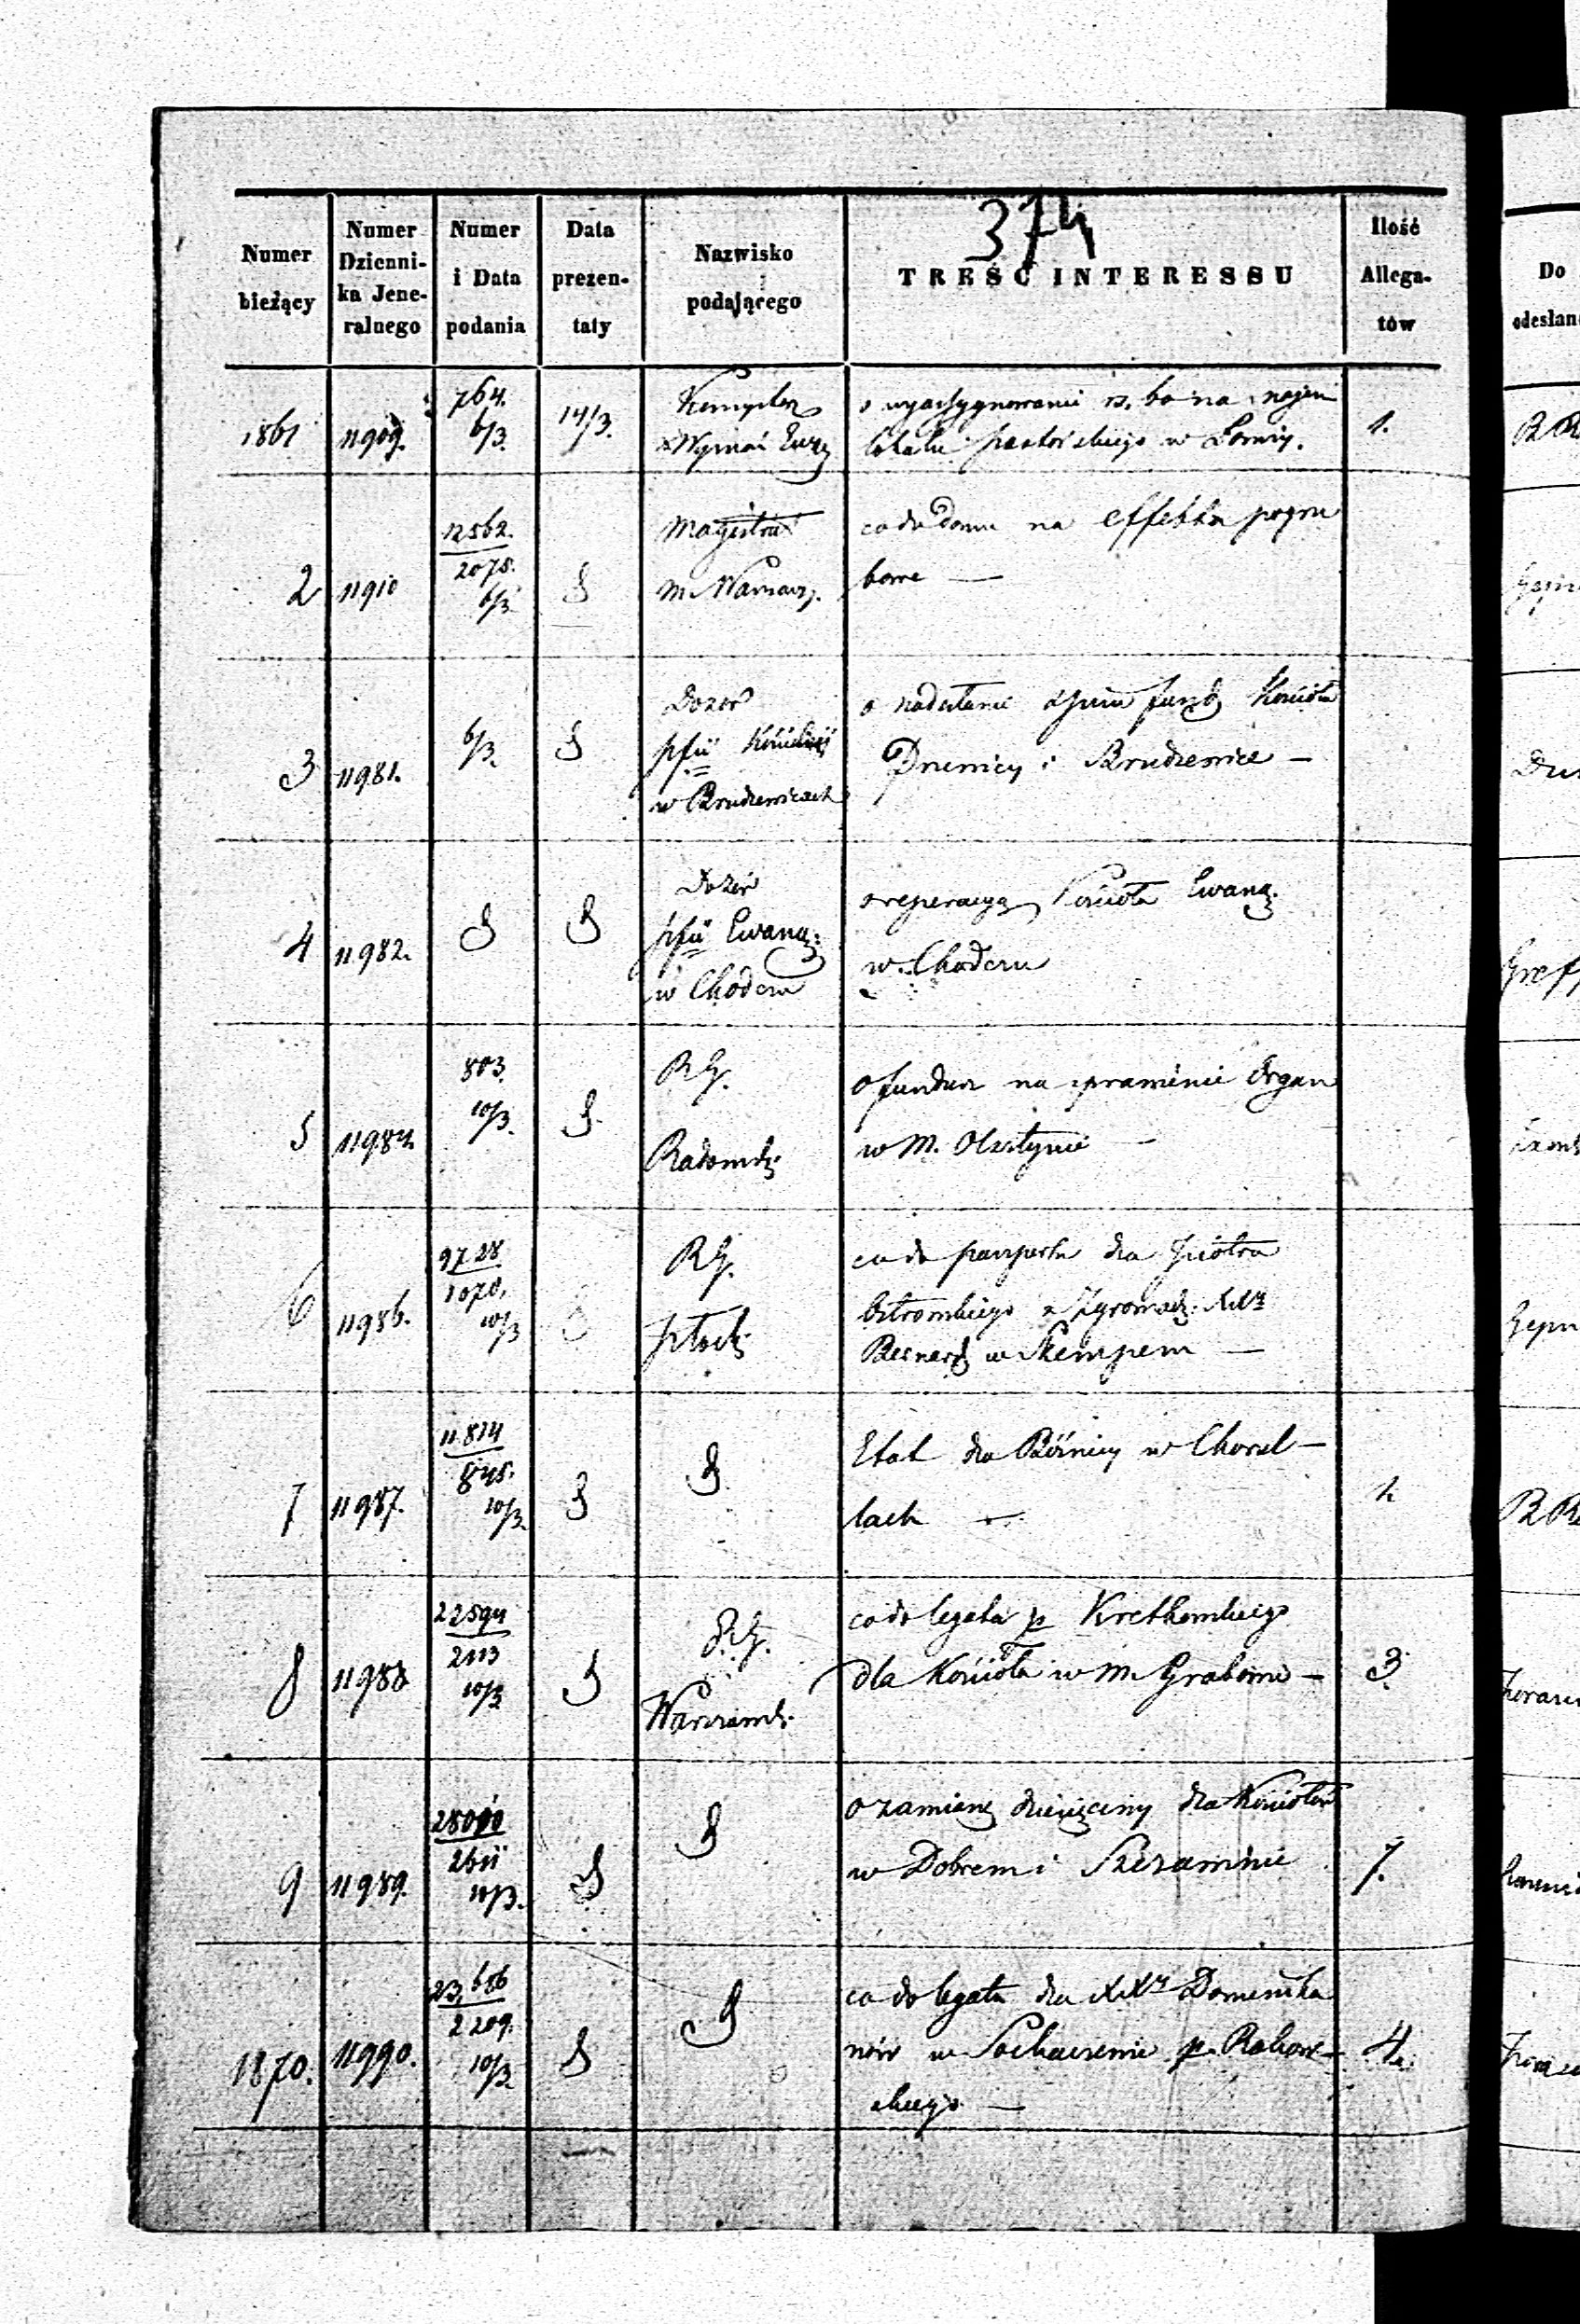 374
Numer bieżący
Numer Dzienni-ka Jene-ralnego
Numer i Data podania
Data prezen-taty
Nazwisko podającego
TREŚĆ INTERESSU
Ilość Allega-tów
Do
odesłan
1861 11909. 764. 6/3. 14/3. 1.
o wyassygnowanie rs. 60 na najem
lokalu pastorskiego w Łomży.
2 11910 12562. 2075. 6/3
Magistrat
m. Warszawy.
co do domu na effekta pogrze
bowe —
3 11981. 6/3.
Dozór
pfii
w Brudzewicach
o nadesłanie fund Kościoła
i Brudzewice —
4 11982.
Dozór
pfii Ewang:
w Chodczu
o reperacyą Kościoła Ewang.
w Chodczu
5 11984. 803. 10/3.
RG.
Radomsk:
o fundusz na sprawienie Organ
w M. Olsztynie —
6 11986. 9728 1070. 10/3
RG.
Płock:
co do paszportu dla Piotra
z Zgromadz: XXr
Bernard w Skempem —
7 11987. 11814 845. 10/3.
Etat dla Bóżnicy w Chorzel —
lach —
8 11988 22594 2113 10/3 3.
R.G.
Warszawsk:
co do legatu p Kretkowskiego
dla Kościoła w m. Grabowie —
9 11989. 28000 2611 10/3. 7.
o zamianę dziesięciny dla Kościołów
w Dobrem i Szczawinie
1870. 11990. 23,656 2209. 10/3 4.
co do legatu dla XXr Dominika
nów w Sochaczewie p. Rakow —
skiego —